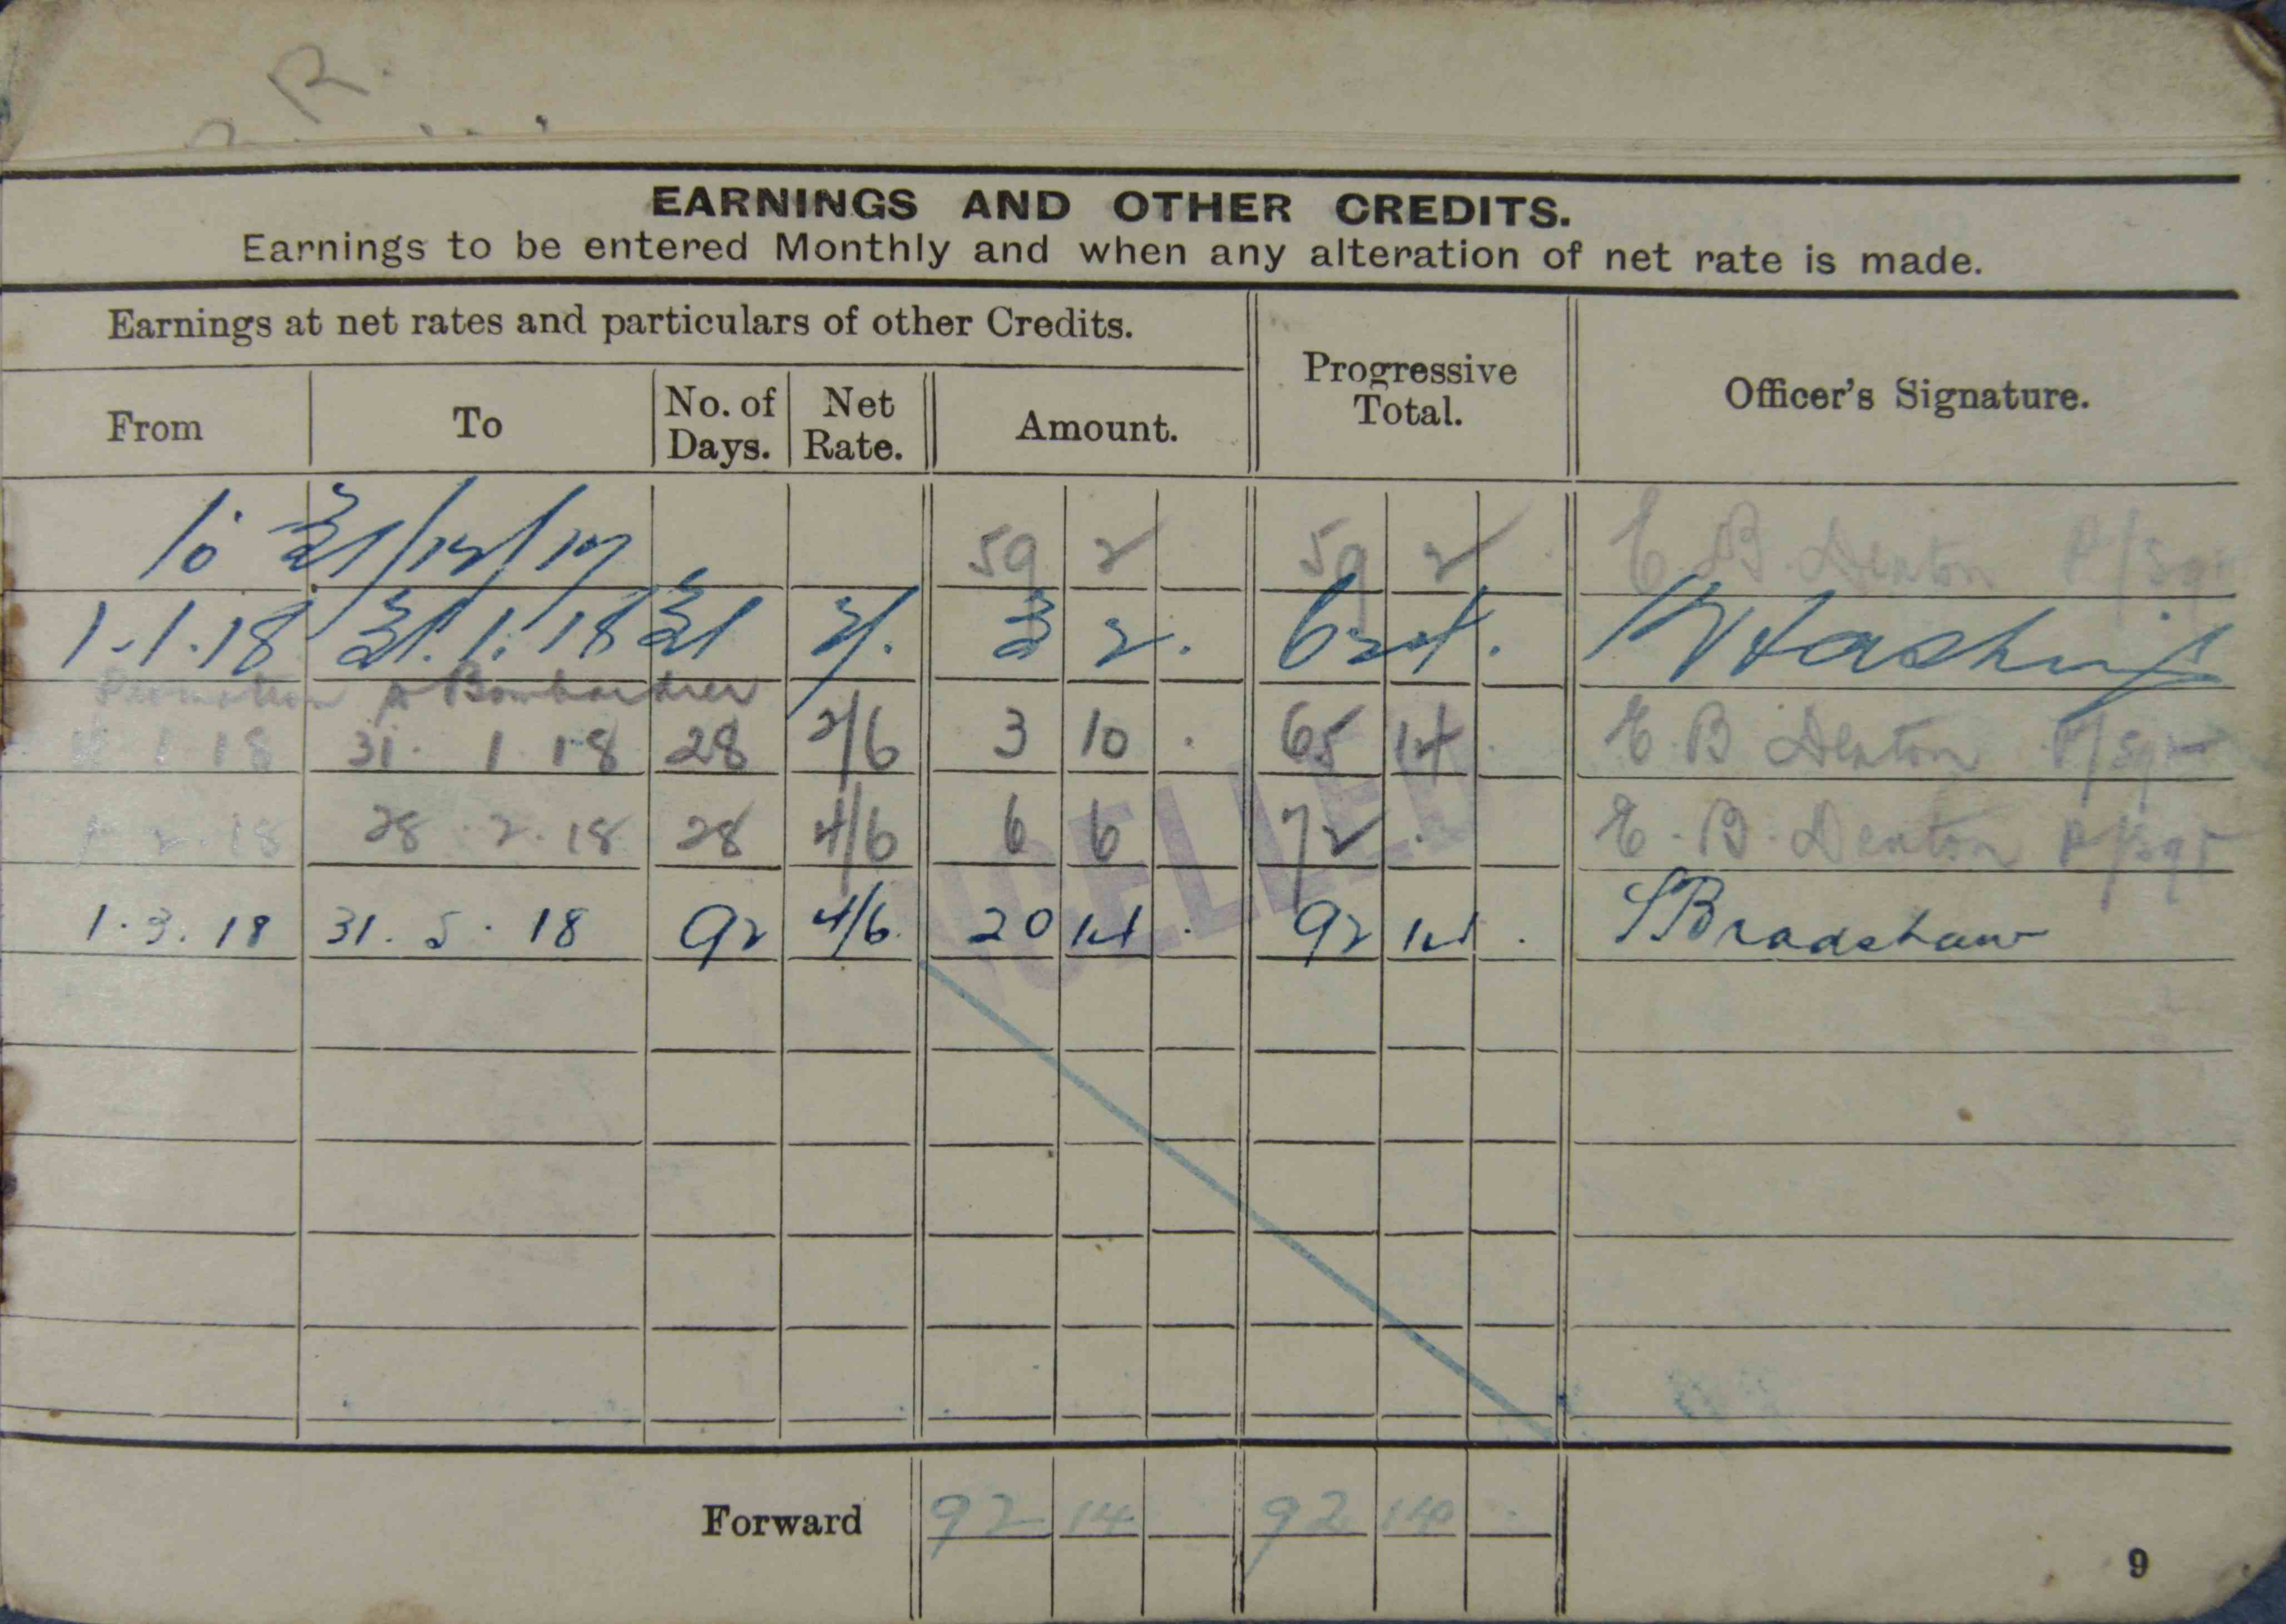 R.
EARNINGS AND OTHER CREDITS.
Earnings to be entered Monthly and when any alteration of net rate is made.
Earnings at net rates and particulars of other Credits. Progressive Total. Officer's Signature.
From To No. of Days. Net Rate. Amount.
To 31/12/17 59 2 59 2 E. B. Denton P/Sgt
1.1.18 31.1.18 31 2/. 3 2 . 62 4 .
Promotion to Bombardier
1 18 31. 1 18 28 2/6 3 10 . 65 14 . E. B Denton P/Sgt
2.18 28.2.18 28 4/6 6 6 72 . E. B. Denton P/Sgt
1.3.18 31.5.18 92 4/6 20 14 . 92 14 . Bradshaw
CANCELLED
Forward 92 14 92 14 .
9